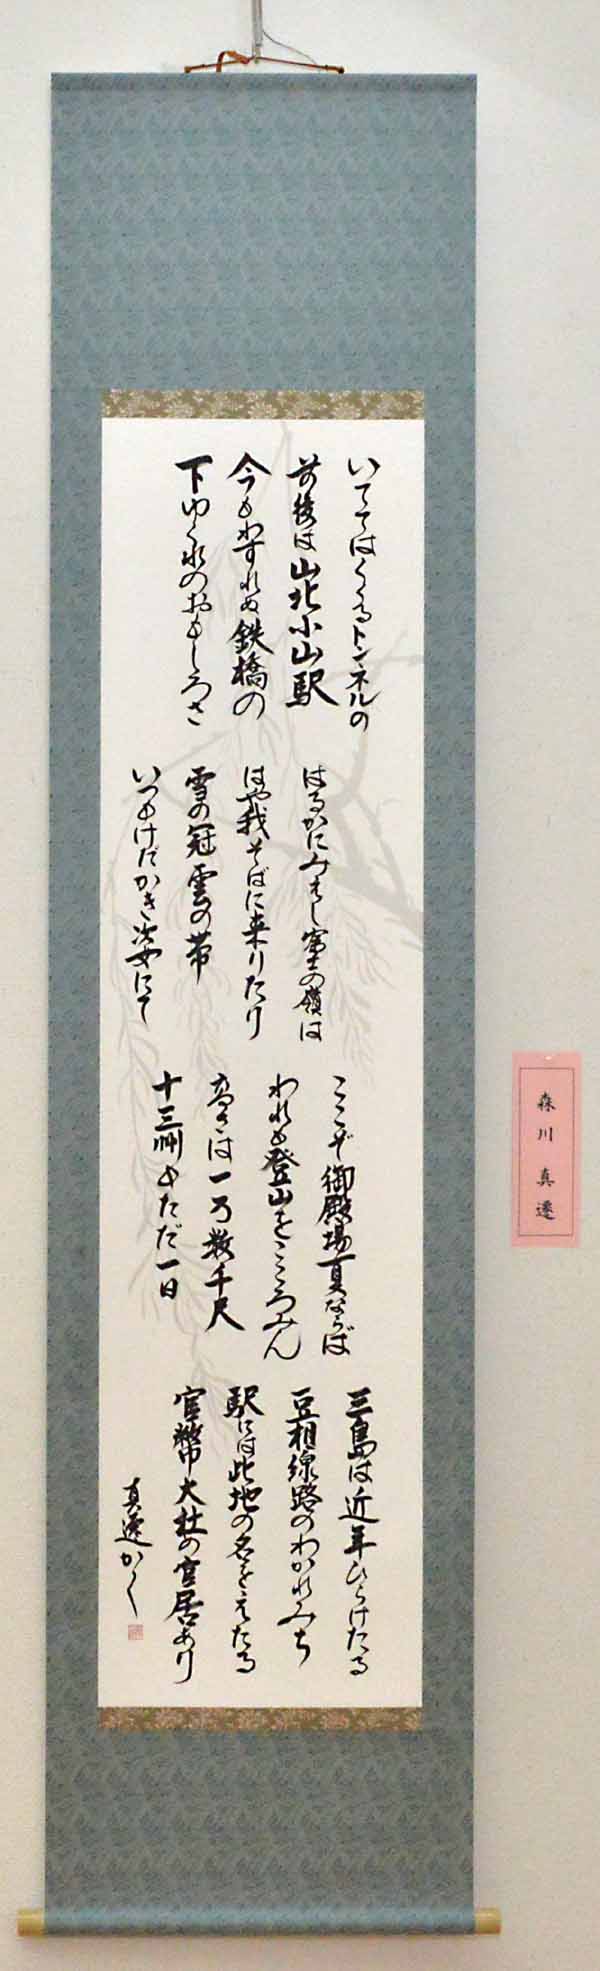 いでてはくゞるトンネルの
前後は山北小山駅
今もわすれぬ鉄橋の
下ゆく水のおもしろさ
はるかにみえし富士の嶺は
はや我そばに来りたり
雪の冠雲の帯
いつもけだかき姿にて
こゝぞ御殿場夏ならば
われも登山をこゝろみん
高さは一万数千尺
十三州もただ一目
三島は近年ひらけたる
豆相線路のわかれみち
駅には此地の名をえたる
官幣大社の宮居あり
真遷かく
森川真遷